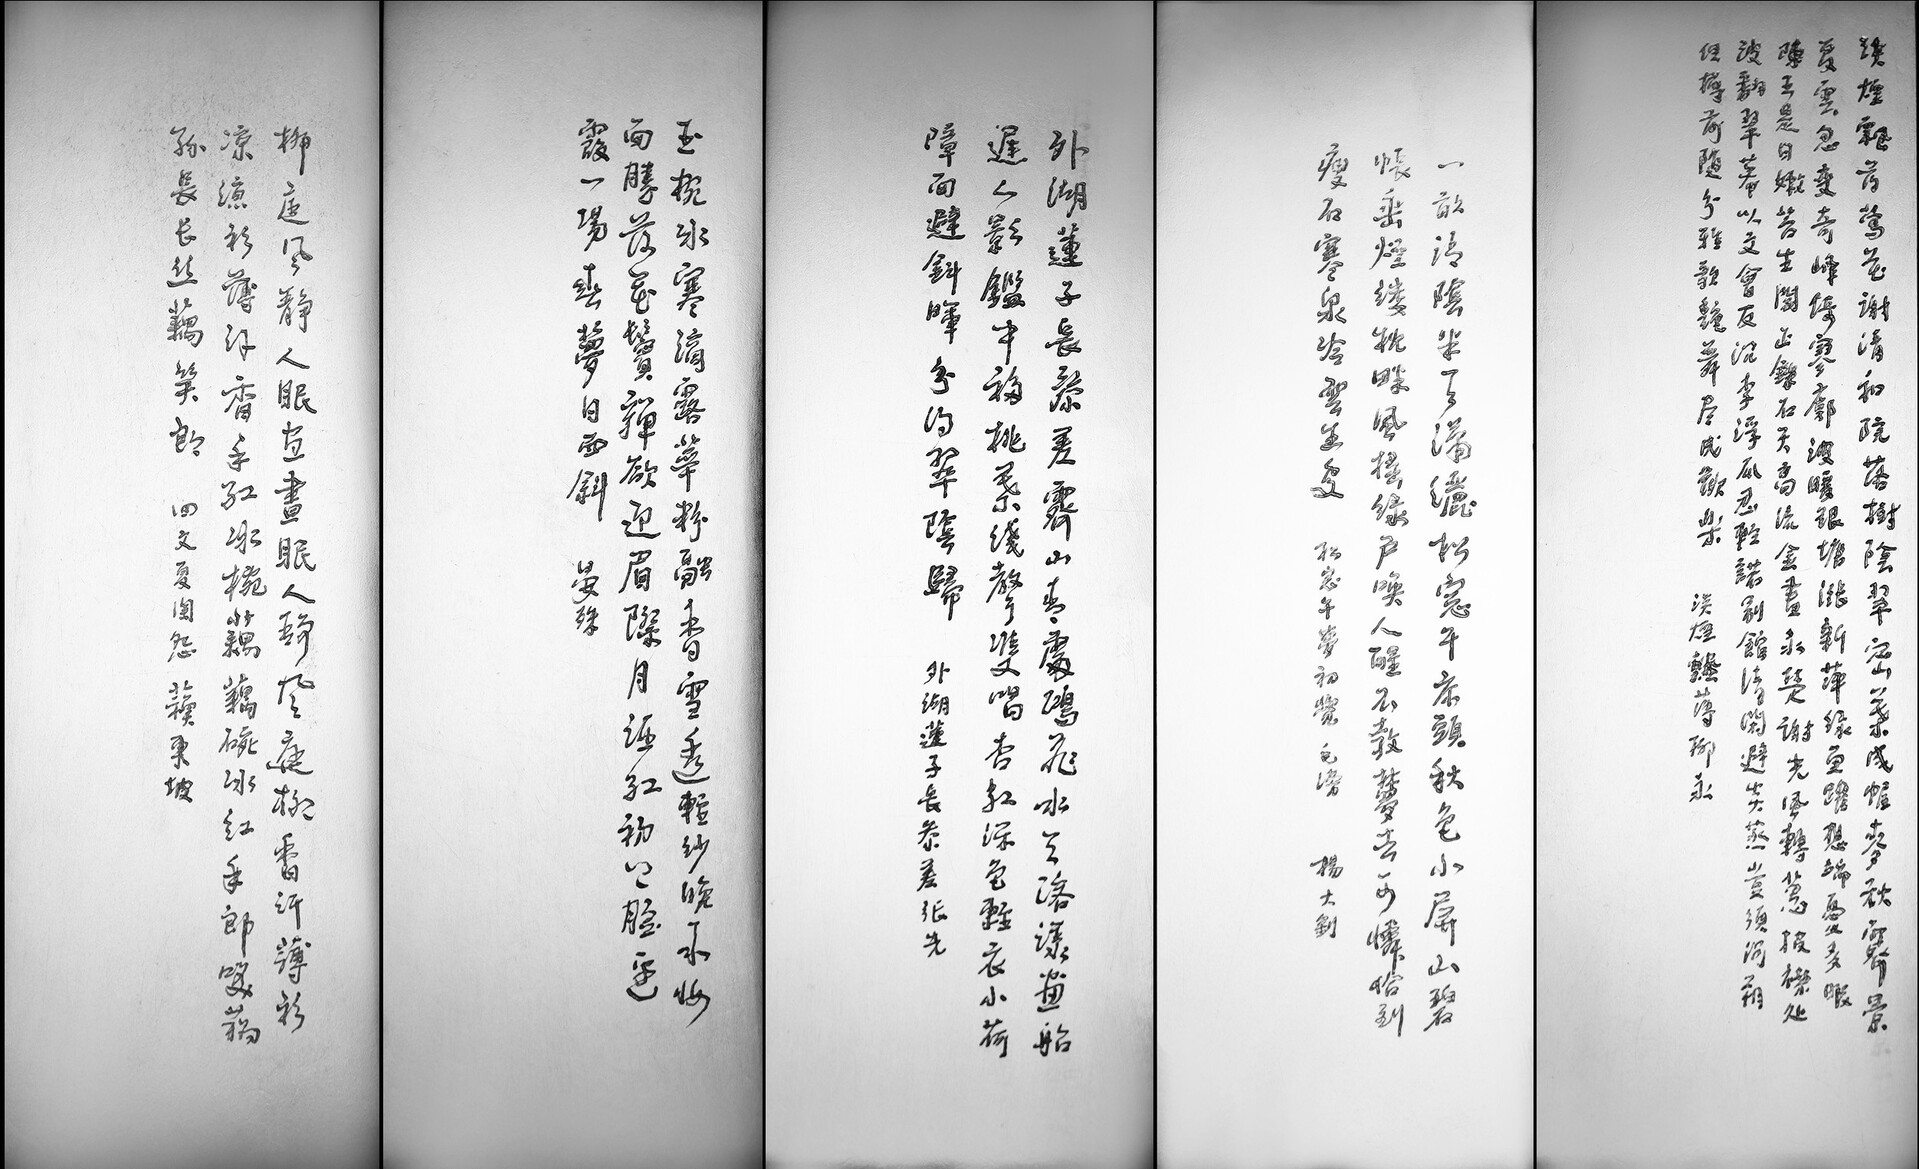 淡煙飄薄鶯花謝清和院落樹陰翠密葉成幄麥秋霽景
夏雲忽變奇峰倚寥廓波暖銀塘漲新萍綠魚躍想端憂多暇
陳王是日嫩苔生閣正鑠石天高流金晝永楚謝光風轉蕙披襟处
波翻翠幕以文會友沉李浮瓜忍輕諾別館清閑避炎蒸豈須河朔
但樽前隨分雅歌艷舞尽成歡樂 淡煙飄薄柳永
一畝清陰半天瀟灑松窗午床頭秋色小屏山碧
帳垂煙縷枕畔風搖綠戶喚人醒不教夢去可憐恰到
瘦石寒泉冷雲生處 松窗午夢初覺 毛滂 楊大釗
外湖蓮子長參差霽山青處鷗飛水天溶漾畫船
遲人影鑑中移桃葉淺聲雙唱杏紅深色輕衣小荷
障面避斜暉分得翠陰歸 外湖蓮子長參差張先
玉椀冰寒滴露華粉融香雪透輕紗晚來妝
面勝荷花鬢嚲欲迎眉際月酒紅初上臉邊
霞一場春夢日西斜 晏殊
柳庭風靜人眠晝晝眠人靜風庭柳香汗薄衫
凉凉衫薄汗香手紅冰椀藕藕碗冰紅手郎笑藕
絲長长丝藕笑郎 回文夏閨怨 蘇東坡